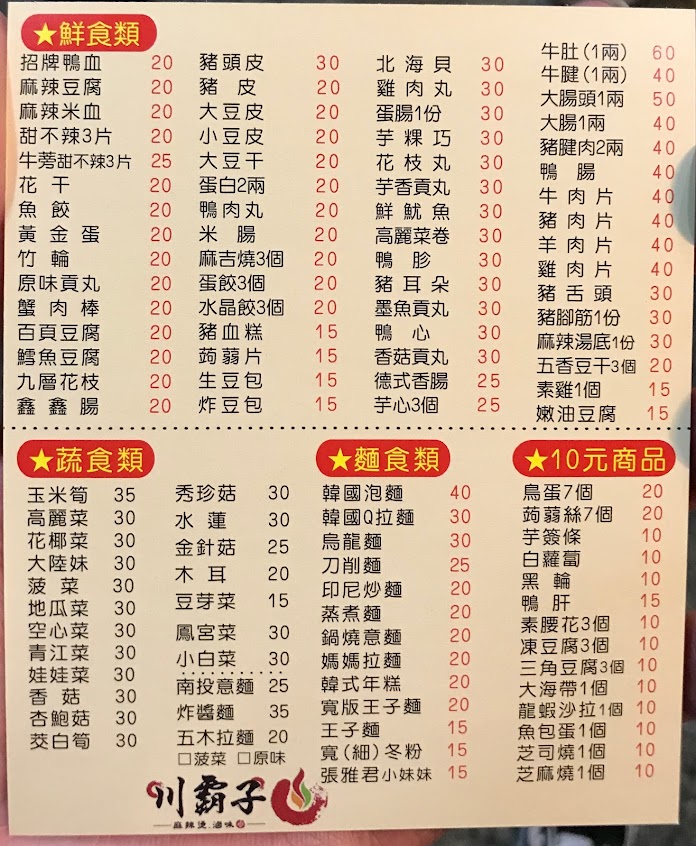 ★鮮食類
招牌鴨血 20
麻辣豆腐 20
麻辣米血 20
甜不辣3片 20
牛蒡甜不辣3片 25
花干 20
魚餃 20
黃金蛋 20
竹輪 20
原味貢丸 20
蟹肉棒 20
百頁豆腐 20
鱈魚豆腐 20
九層花枝 20
鑫鑫腸 20
豬頭皮 30
豬皮 20
大豆皮 20
小豆皮 20
大豆干 20
蛋白2兩 20
鴨肉丸 20
米腸 20
麻吉燒3個 20
蛋餃3個 20
水晶餃3個 20
豬血糕 15
蒟蒻片 15
生豆包 15
炸豆包 15
北海貝 30
雞肉丸 30
蛋腸1份 30
芋粿巧 30
花枝丸 30
芋香貢丸 30
鮮魷魚 30
高麗菜卷 30
鴨胗 30
豬耳朵 30
墨魚貢丸 30
鴨心 30
香菇貢丸 30
德式香腸 25
芋心3個 25
牛肚(1兩) 60
牛腱(1兩) 40
大腸頭1兩 50
大腸1兩 40
豬腱肉2兩 40
鴨腸 40
牛肉片 40
豬肉片 40
羊肉片 40
雞肉片 40
豬舌頭 30
豬腳筋1份 30
麻辣湯底1份 30
五香豆干3個 20
素雞1個 15
嫩油豆腐 15
★蔬食類
玉米筍 35
高麗菜 30
花椰菜 30
大陸妹 30
菠菜 30
地瓜菜 30
空心菜 30
青江菜 30
娃娃菜 30
香菇 30
杏鮑菇 30
茭白筍 30
秀珍菇 30
水蓮 30
金針菇 25
木耳 20
豆芽菜 15
鳳宮菜 30
小白菜 30
南投意麵 25
炸醬麵 35
五木拉麵 20
□菠菜 □原味
★麵食類
韓國泡麵 40
韓國Q拉麵 30
烏龍麵 30
刀削麵 25
印尼炒麵 20
蒸煮麵 20
鍋燒意麵 20
媽媽拉麵 20
韓式年糕 20
寬版王子麵 20
王子麵 15
寬(細)冬粉 15
張雅君小妹妹 15
★10元商品
鳥蛋7個 20
蒟蒻絲7個 20
芋簽條 10
白蘿蔔 10
黑輪 10
鴨肝 15
素腰花3個 10
凍豆腐3個 10
三角豆腐3個 10
大海帶1個 10
龍蝦沙拉1個 10
魚包蛋1個 10
芝司燒1個 10
芝麻燒1個 10
川霸子
麻辣燙.滷味